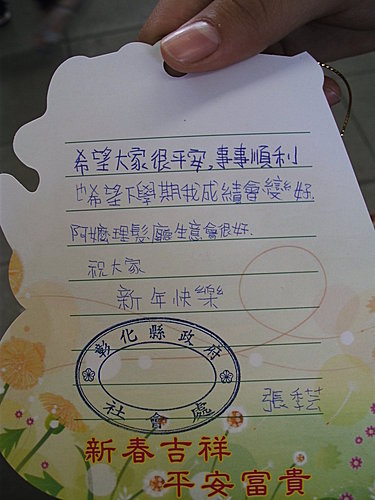 希望大家很平安,事事順利
也希望下學期我成績會變好.
阿嬤理髮廳生意會很好.
祝大家
新年快樂
彰化縣政府
社會處
張季芸
新春吉祥
平安富貴